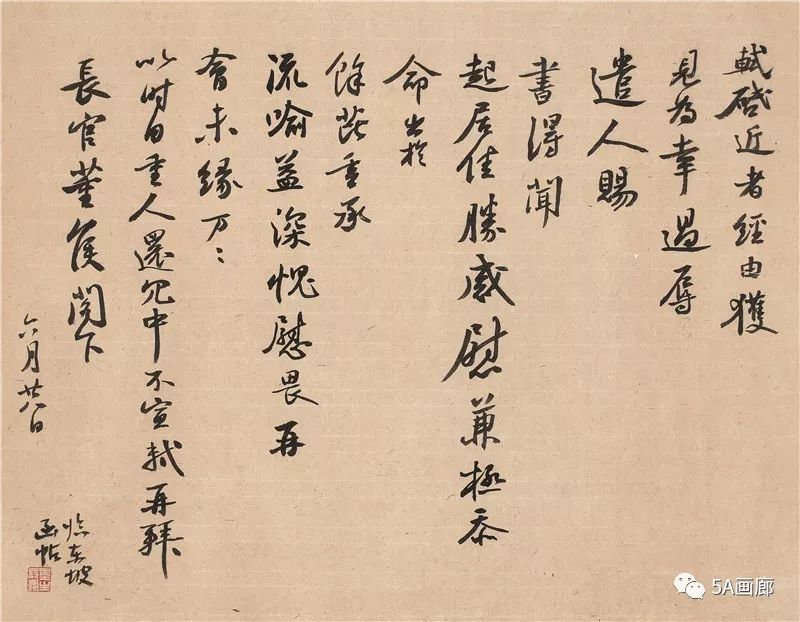 軾啓近者經由獲
見為幸過辱
遣人賜
書得聞
起居佳勝感慰兼極忝
命出於
餘芘重承
流喻益深愧慰畏再
會未緣万〻
以时自重人還冗中不宣軾再拜
長官董侯閣下
六月廿八日
临东坡
函帖
5A画廊